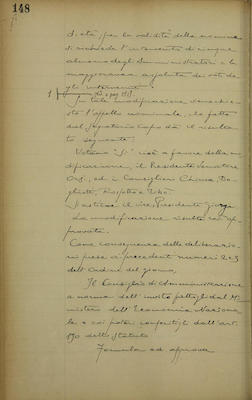 148
età, per la validità della nomina
si richiede l'intervento di cinque
almeno degli Amministratori e la
maggioranza assoluta dei voti de
gli intervenuti
In tale modificazione, venne chie
sto l'appello nominale, e fatto
dal Segretario Capo dà il risulta
to seguente:
Votano "Sì" cioè a favore della mo
dificazione, il Presidente Senatore
ed i Consiglieri
e
Si astiene il vice Presidente
La modificazione risulta così ap
provata.
Come conseguenza delle deliberazio
ni prese ai precedenti numeri 2 e 3
dell'Ordine del giorno,
Il Consiglio di Amministrazione
a norma dell'invito fattogli dal Mi
nistero dell'Economia Naziona
le e coi poteri conferitigli dall'art.
dello Statuto
Formula ed approva